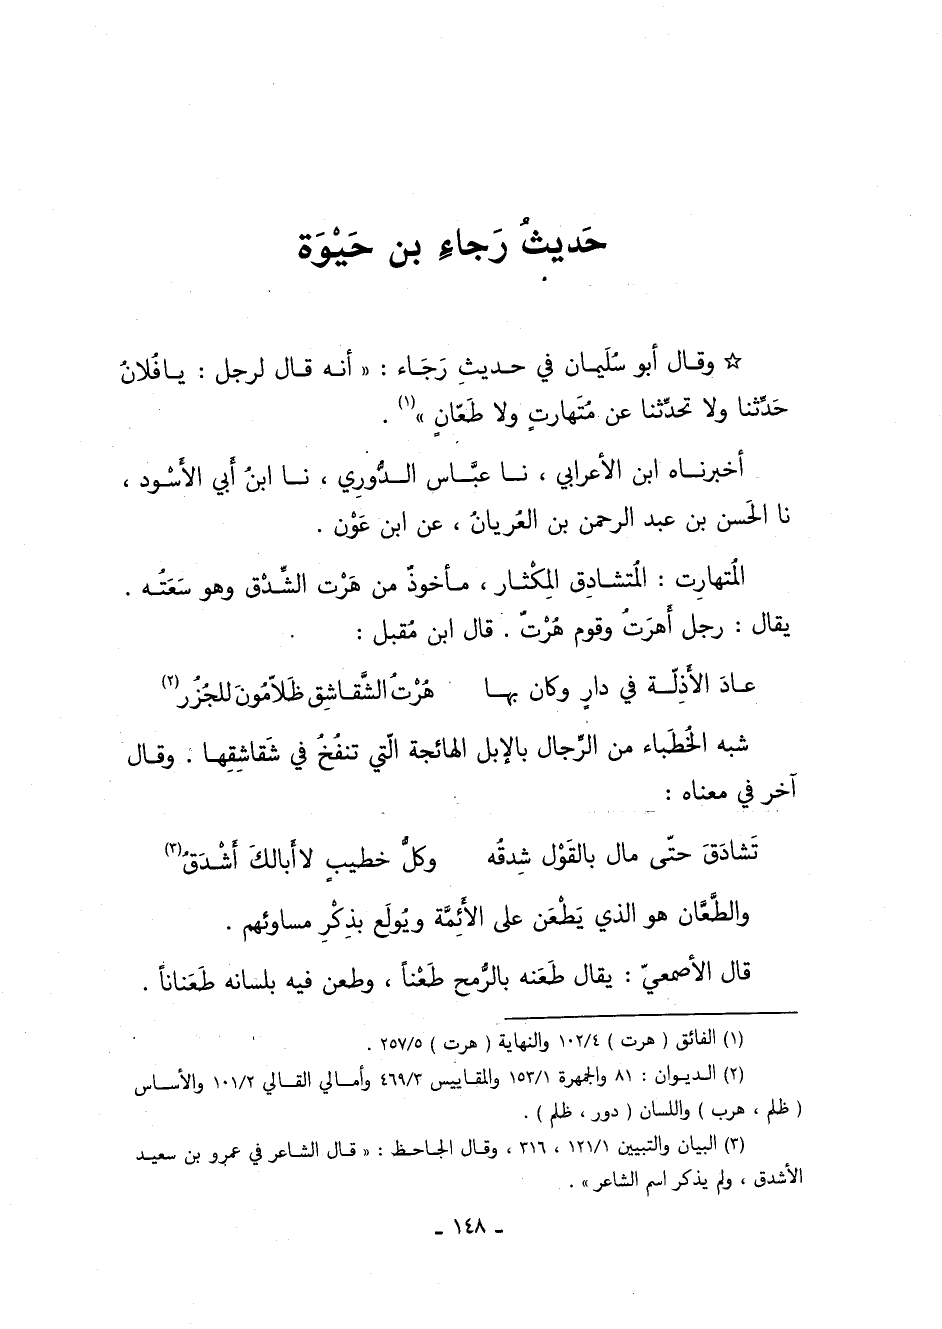 حَديثُ رَجاءِ بن حَيْوَة
☆ وقـال أبو سُلَيمان في حـديثِ رَجَـاء : « أنـه قـال لرجل : يـافُلانُ
حَدِّثنا ولا تحدِّثنا عن مُتَهارتٍ ولا طَعّانٍ »(١) .
أخبرنـاه ابن الأعرابي ، نـا عبَّـاس الـدُّوري ، نـا ابنُ أبي الأَسْود ،
نا الحَسن بن عبد الرحمن بن العُريانُ ، عن ابن عَوْن .
المُتهارِت : المُتشـادِق المِكْثـار ، مـأخوذٌ من هَرْت الشِّـدْق وهو سَعَتُـه .
يقال : رجل أَهرَتُ وقوم هُرْتٌ . قال ابن مُقبل :
عـادَ الأَذِلّـة في دارٍ وكان بهـا هُرْتُ الشَّقـاشِقِ ظَلاّمُونَ للجُزُر(٢)
شبه الخُطَباء من الرِّجال بالإبل الهائجة الّتي تنفُخُ في شَقاشِقِهـا . وقـال
آخر في معناه :
تَشادَقَ حتّى مال بالقَوْل شِدقُه وكلُّ خطيبٍ لاأبالكَ أَشْدَقُ(٣)
والطَّعَّان هو الذي يَطْعَن على الأَئِمَّة ويُولَع بذِكْرِ مساوئهم .
قال الأصمعيّ : يقال طَعَنه بالرُّمح طَعْناً ، وطعن فيه بلسانه طَعَناناً .
(١) الفائق ( هرت ) ١٠٢/٤ والنهاية ( هرت ) ٢٥٧/٥ .
(٢) الـديـوان : ٨١ والجمهرة ١٥٣/١ والمقاييس ٤٦٩/٣ وأمـالي القـالي ١٠١/٢ والأسـاس
( ظلم ، هرب ) واللسان ( دور ، ظلم ) .
(٣) البيان والتبيين ١٢١/١ ، ٣١٦ ، وقـال الجـاحـظ : « قـال الشـاعر في عمرو بن سعيـد
الأشدق ، ولم يذكر اسم الشاعر » .
ـ ١٤٨ ـ